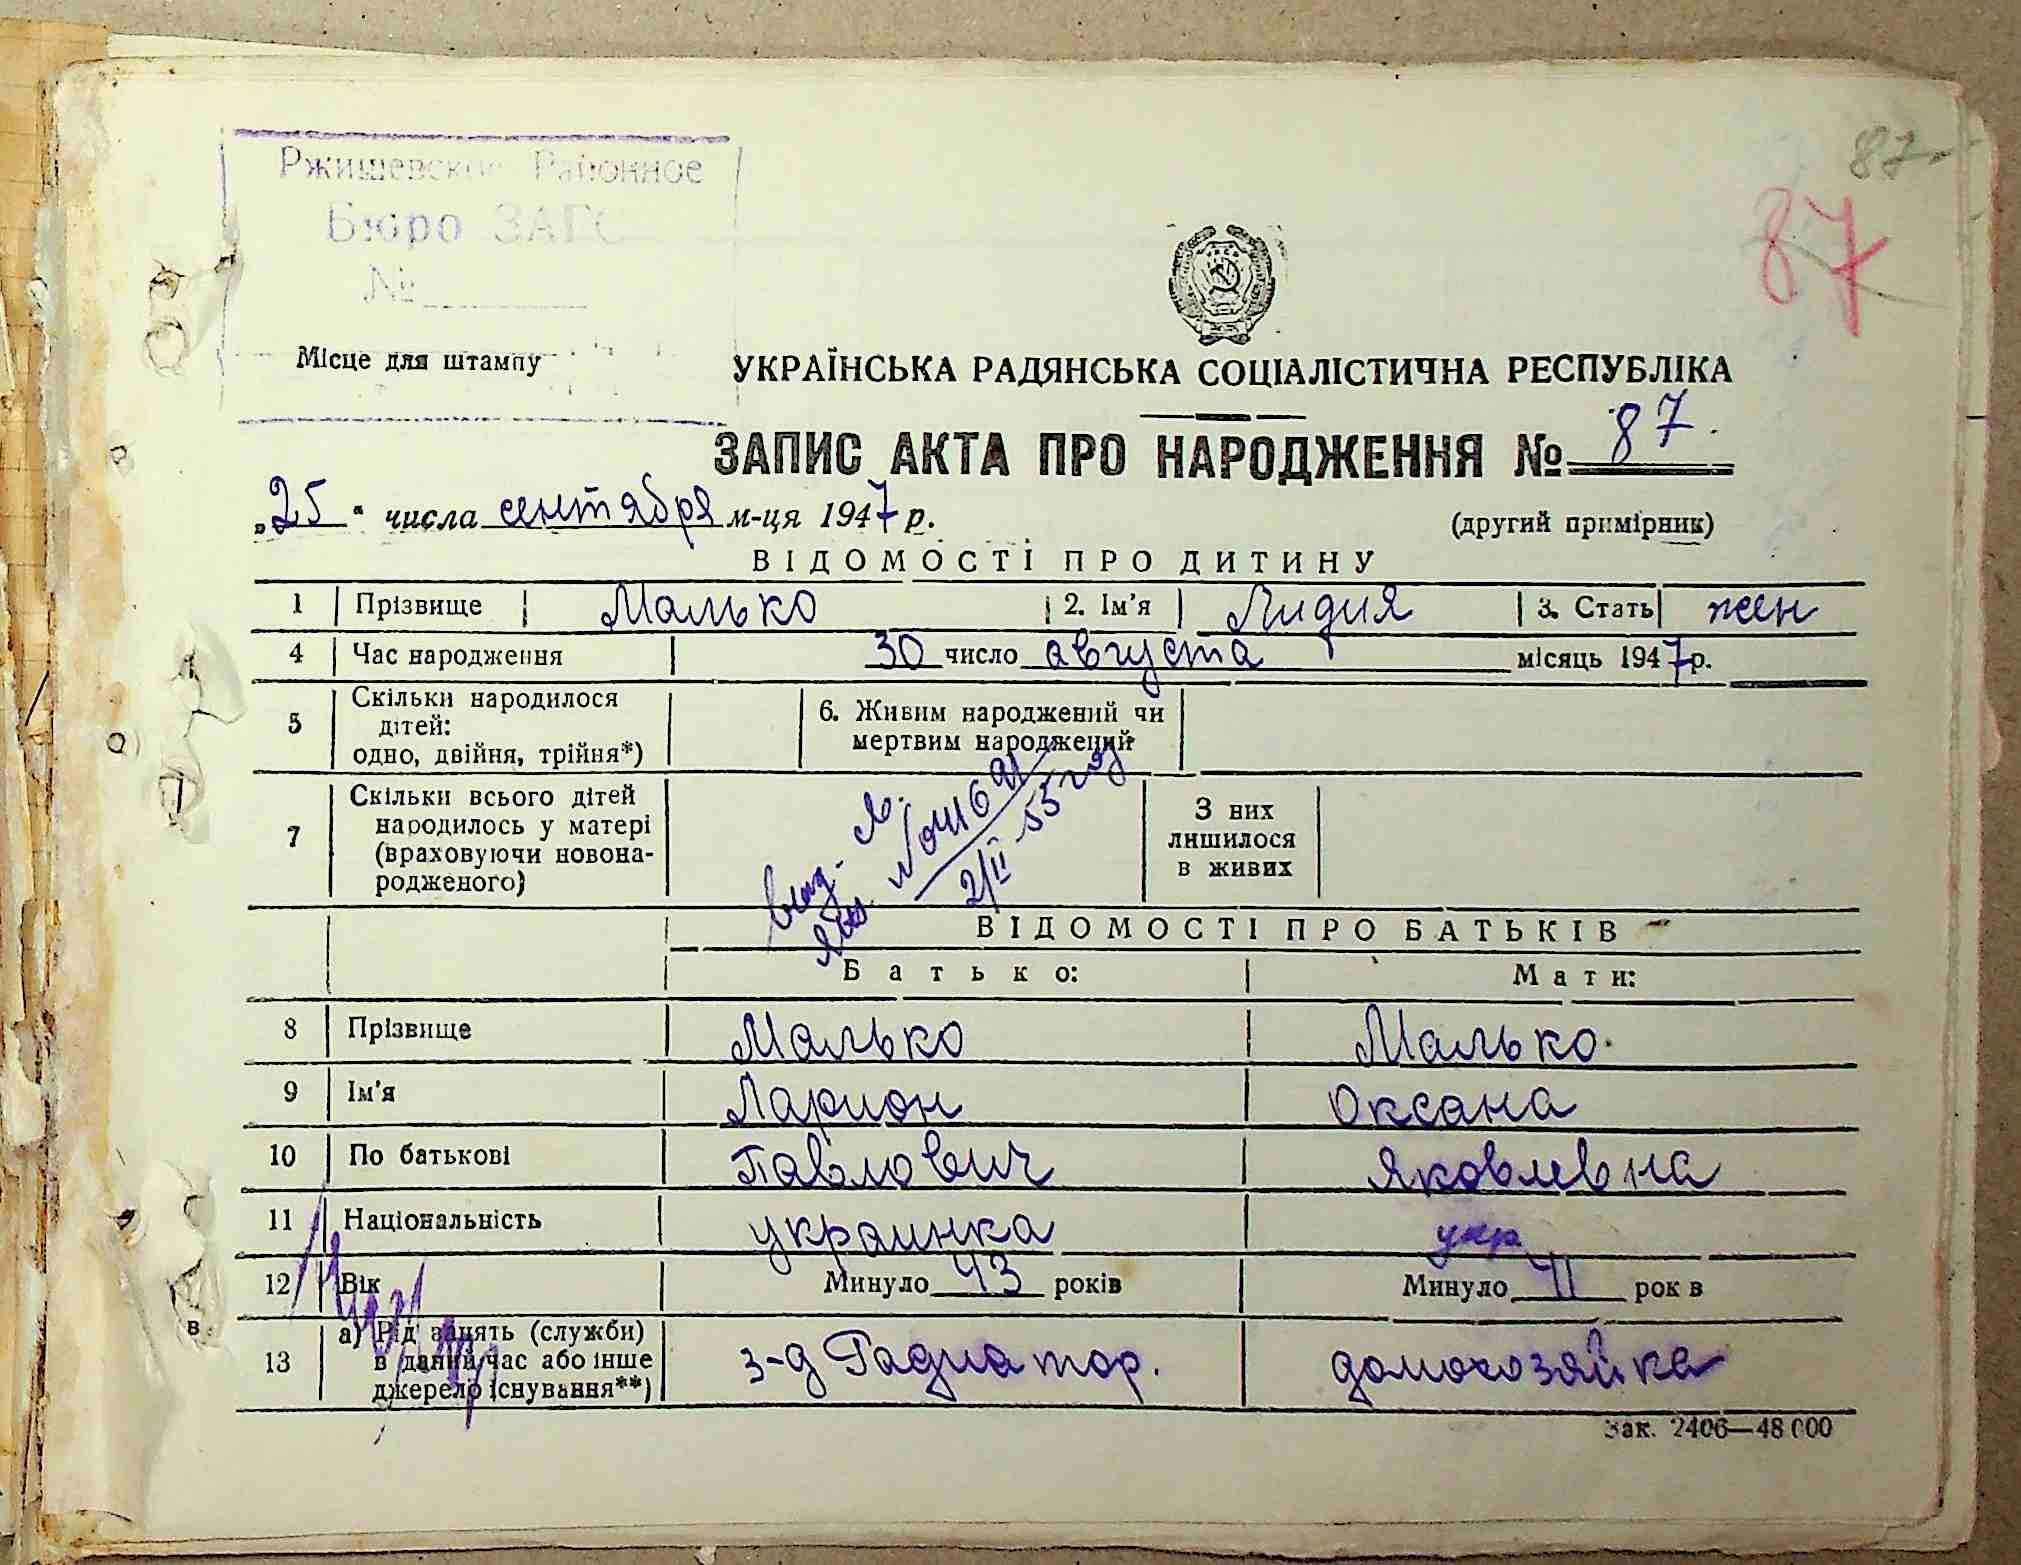 87
87
Ржищевское Районное
Бюро ЗАГС
№
Місце для штампу
УКРАЇНСЬКА РАДЯНСЬКА СОЦІАЛІСТИЧНА РЕСПУБЛІКА
ЗАПИС АКТА ПРО НАРОДЖЕННЯ № 87.
„25“ числа сентября м-ця 1947 р.
(другий примірник)
ВІДОМОСТІ ПРО ДИТИНУ
1 Прізвище Малько 2. Ім'я Лидия 3. Стать жен
4 Час народження 30 число августа місяць 1947 р.
5 Скільки народилося дітей: одно, двійня, трійня*) 6. Живим народжений чи мертвим народжений
7 Скільки всього дітей народилось у матері (враховуючи новонародженого) З них лишилося в живих
2/II 55 год
ВІДОМОСТІ ПРО БАТЬКІВ
Батько: Мати:
8 Прізвище Малько Малько
9 Ім'я Ларион Оксана
10 По батькові Павлович Яковлевна
11 Національність украинка укр.
12 Вік Минуло 43 років Минуло 41 рок в
13 а) Рід занять (служби) в даний час або інше джерело існування**) з-д Радиатор. домохозяйка
Зак. 2406—48 000